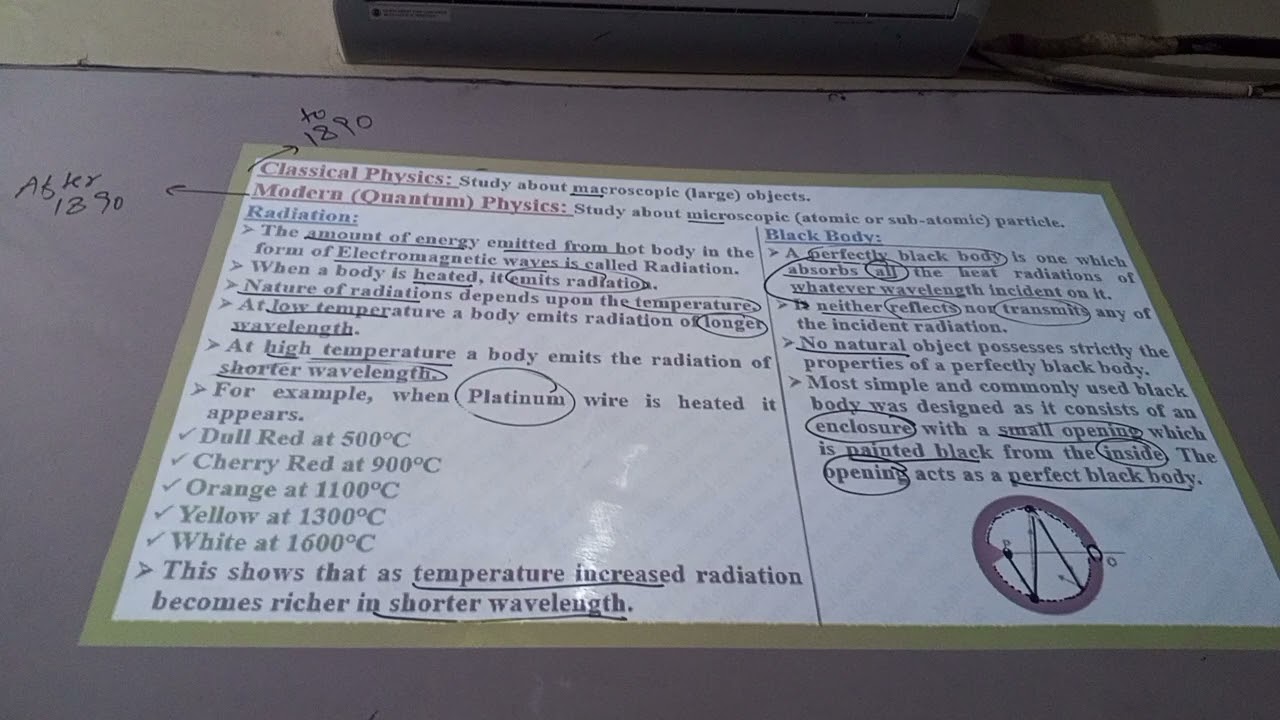 to
1890
After
1890
Classical Physics: Study about macroscopic (large) objects.
Modern (Quantum) Physics: Study about microscopic (atomic or sub-atomic) particle.
Radiation:
➢ The amount of energy emitted from hot body in the
form of Electromagnetic waves is called Radiation.
➢ When a body is heated, it emits radiation.
➢ Nature of radiations depends upon the temperature.
➢ At low temperature a body emits radiation of longer
wavelength.
➢ At high temperature a body emits the radiation of
shorter wavelength.
➢ For example, when Platinum wire is heated it
appears.
✓ Dull Red at 500°C
✓ Cherry Red at 900°C
✓ Orange at 1100°C
✓ Yellow at 1300°C
✓ White at 1600°C
➢ This shows that as temperature increased radiation
becomes richer in shorter wavelength.
Black Body:
➢ A perfectly black body is one which
absorbs all the heat radiations of
whatever wavelength incident on it.
➢ It neither reflects nor transmits any of
the incident radiation.
➢ No natural object possesses strictly the
properties of a perfectly black body.
➢ Most simple and commonly used black
body was designed as it consists of an
enclosure with a small opening which
is painted black from the inside. The
opening acts as a perfect black body.
P
O